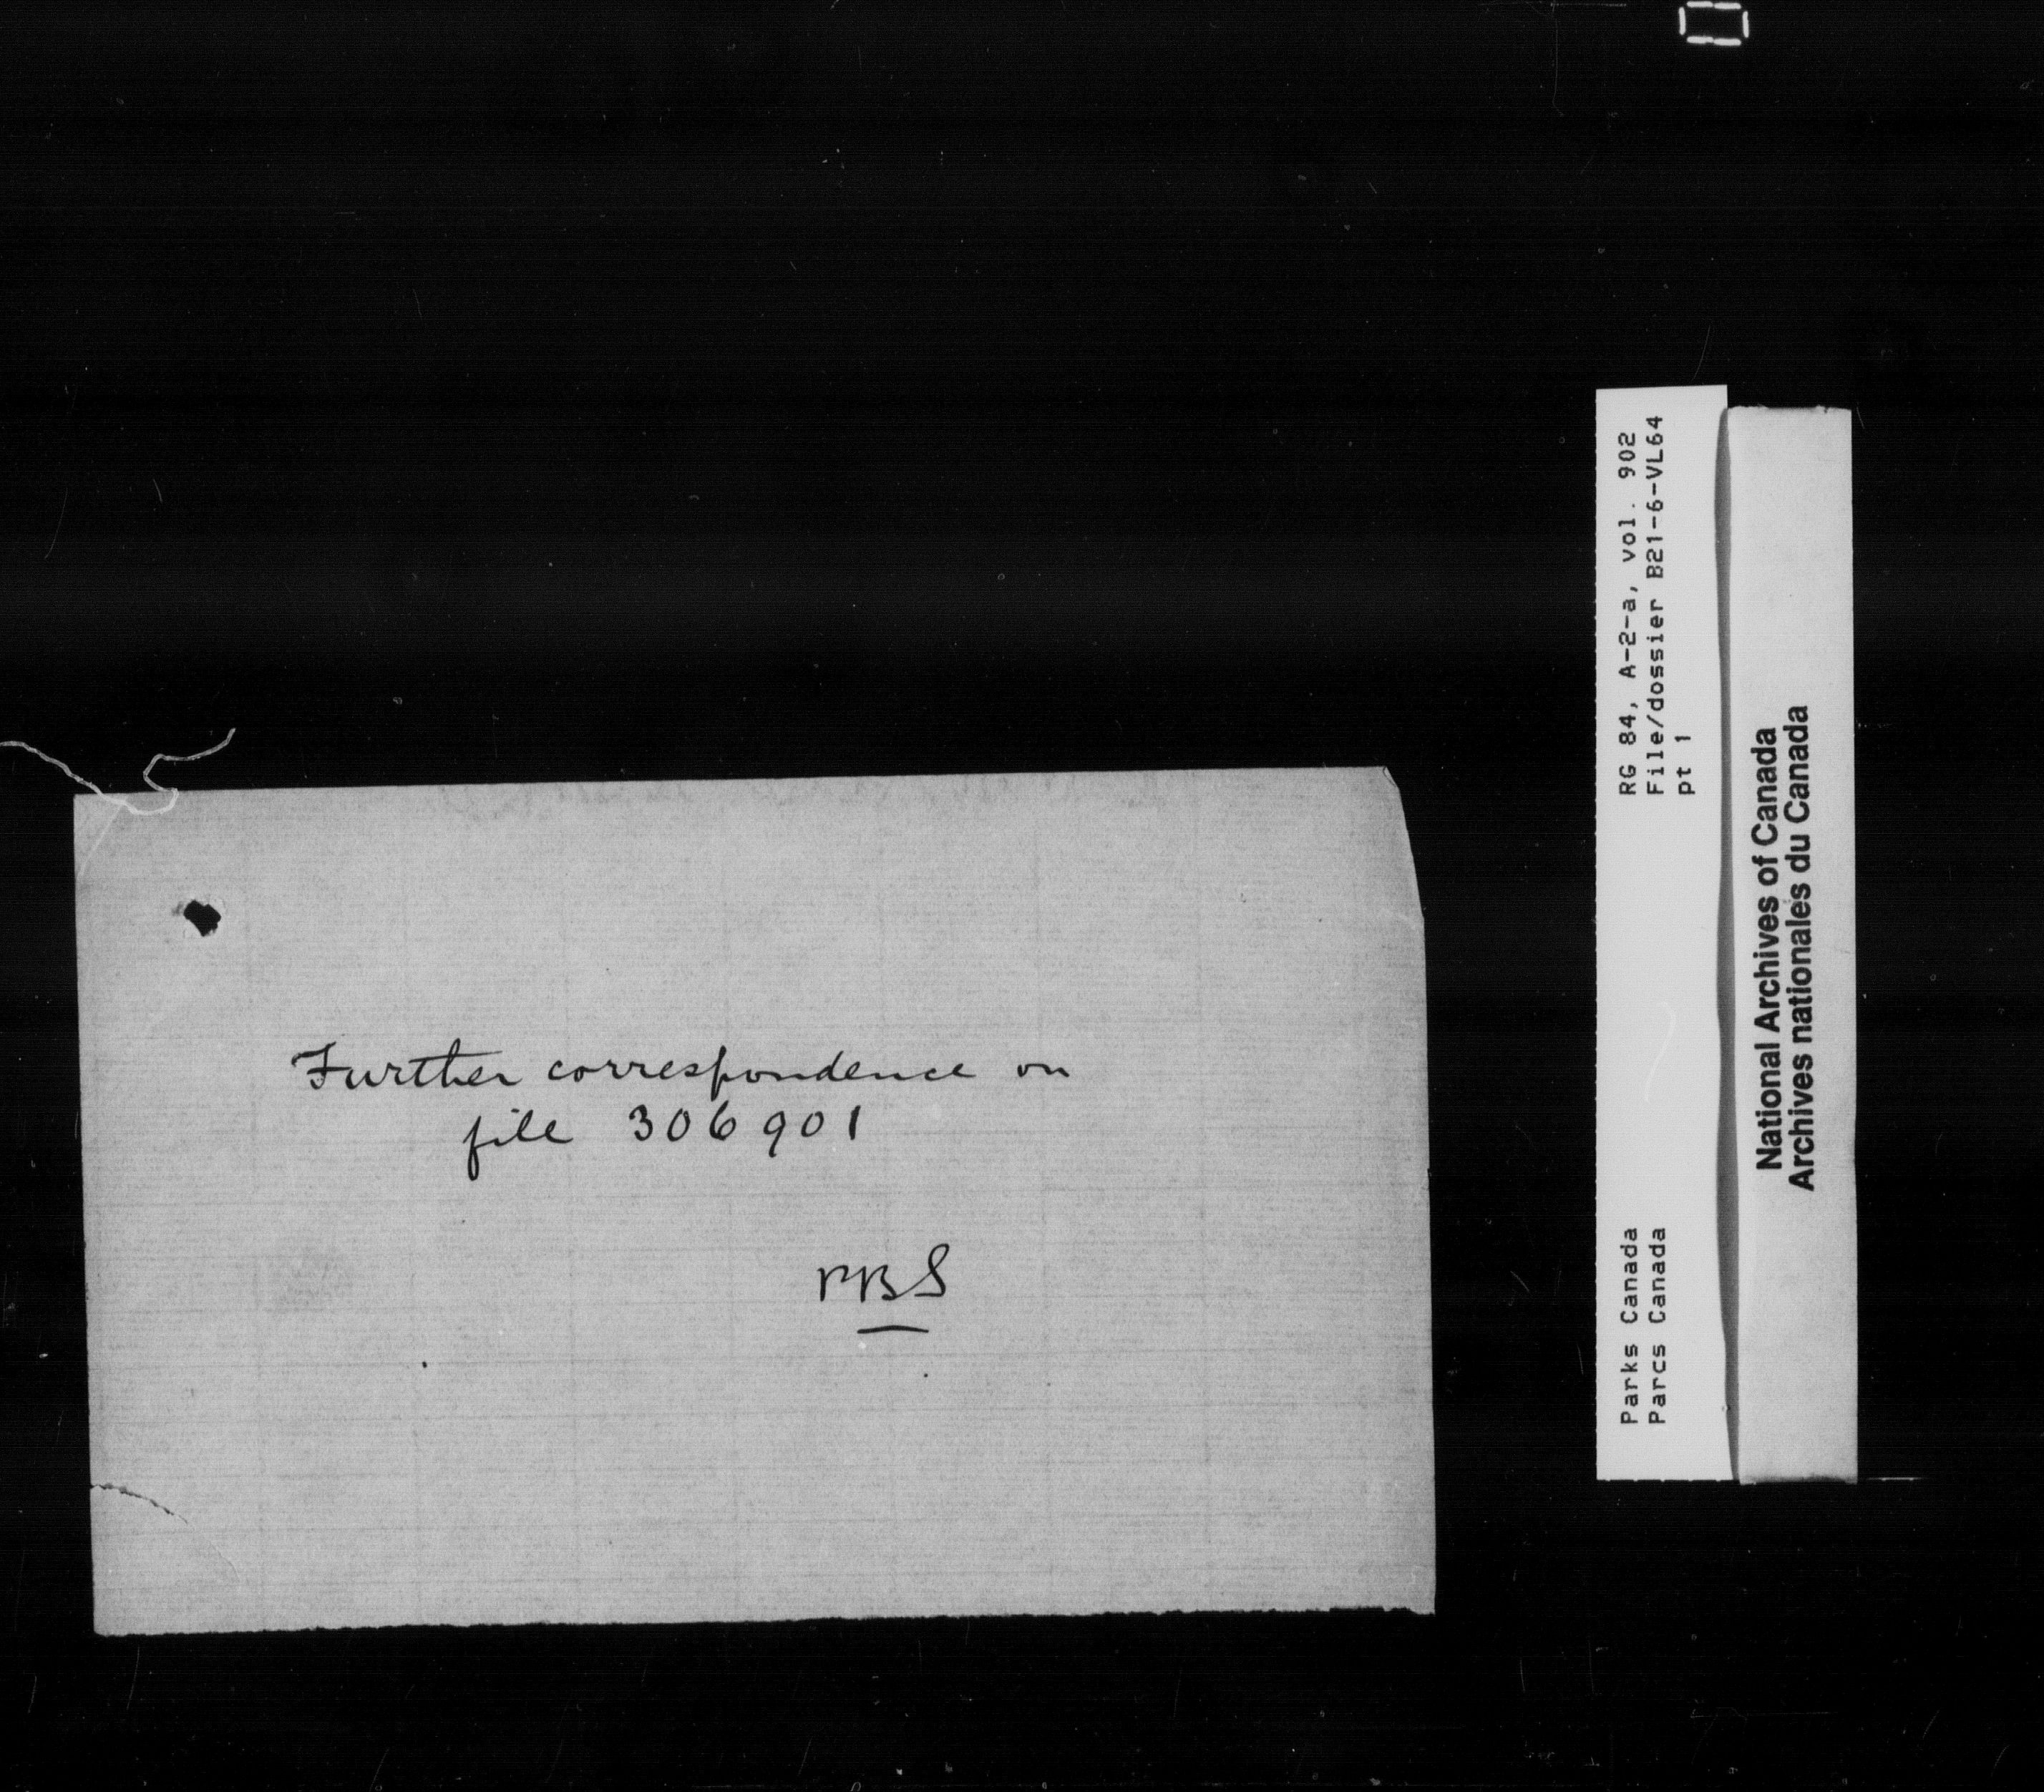 Further correspondence on
file 306901
RG 84, A-2-a, vol. 902
File/dossier B21-6-VL64
pt 1
Parks Canada
Parcs Canada
National Archives of Canada
Archives nationales du Canada